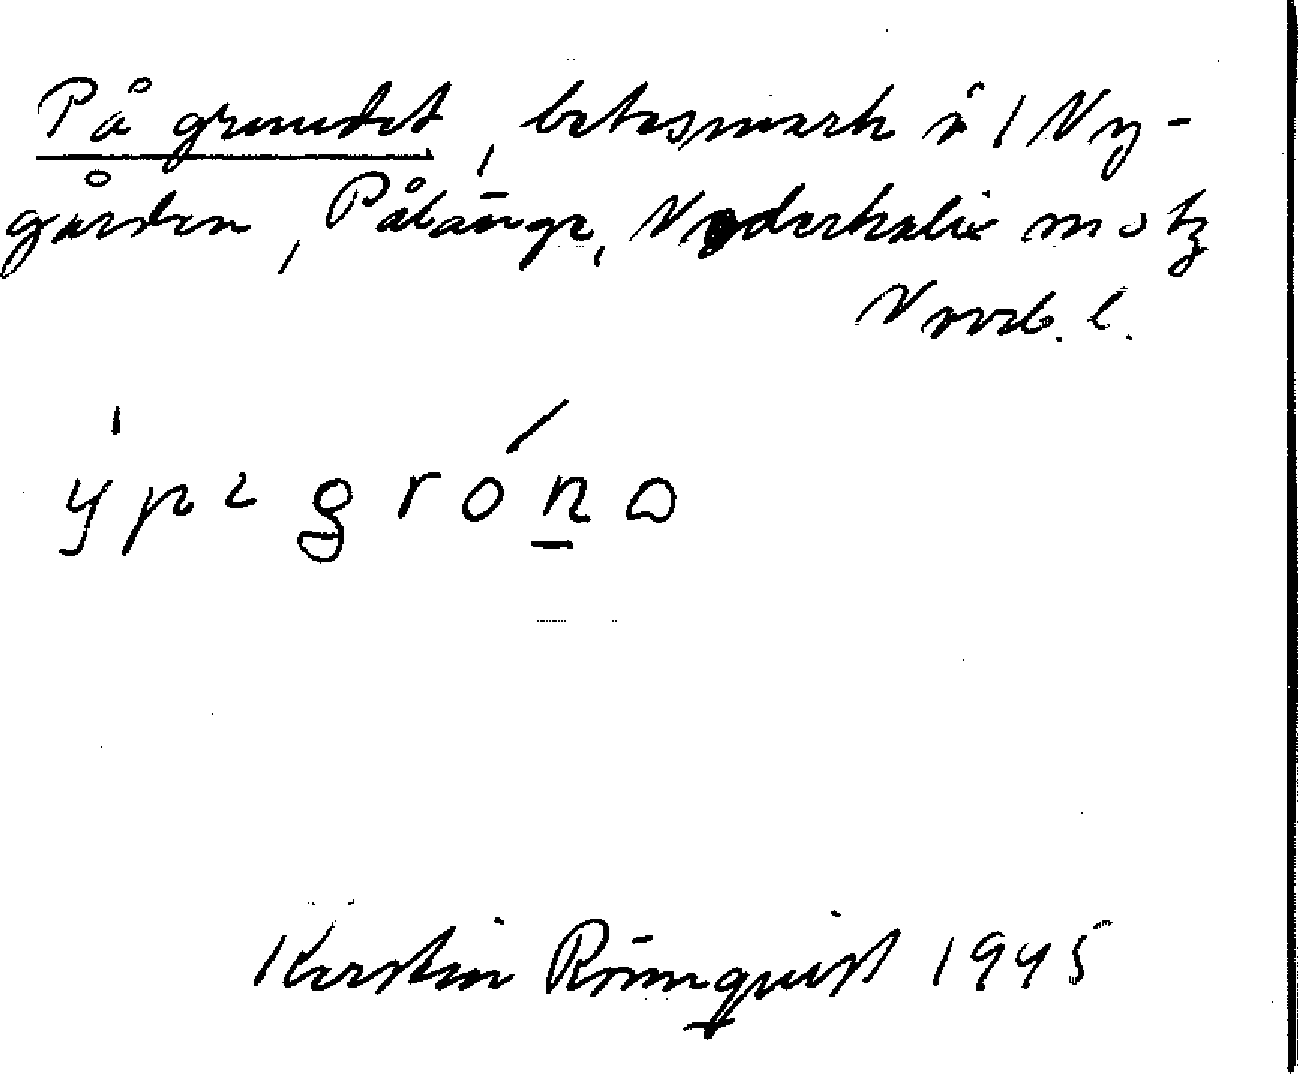 På grundet, betesmark å 1 Ny-
gården, Pålänge, Nederkalix
Norrb. l.
Kerstin Rönnqvist 1945